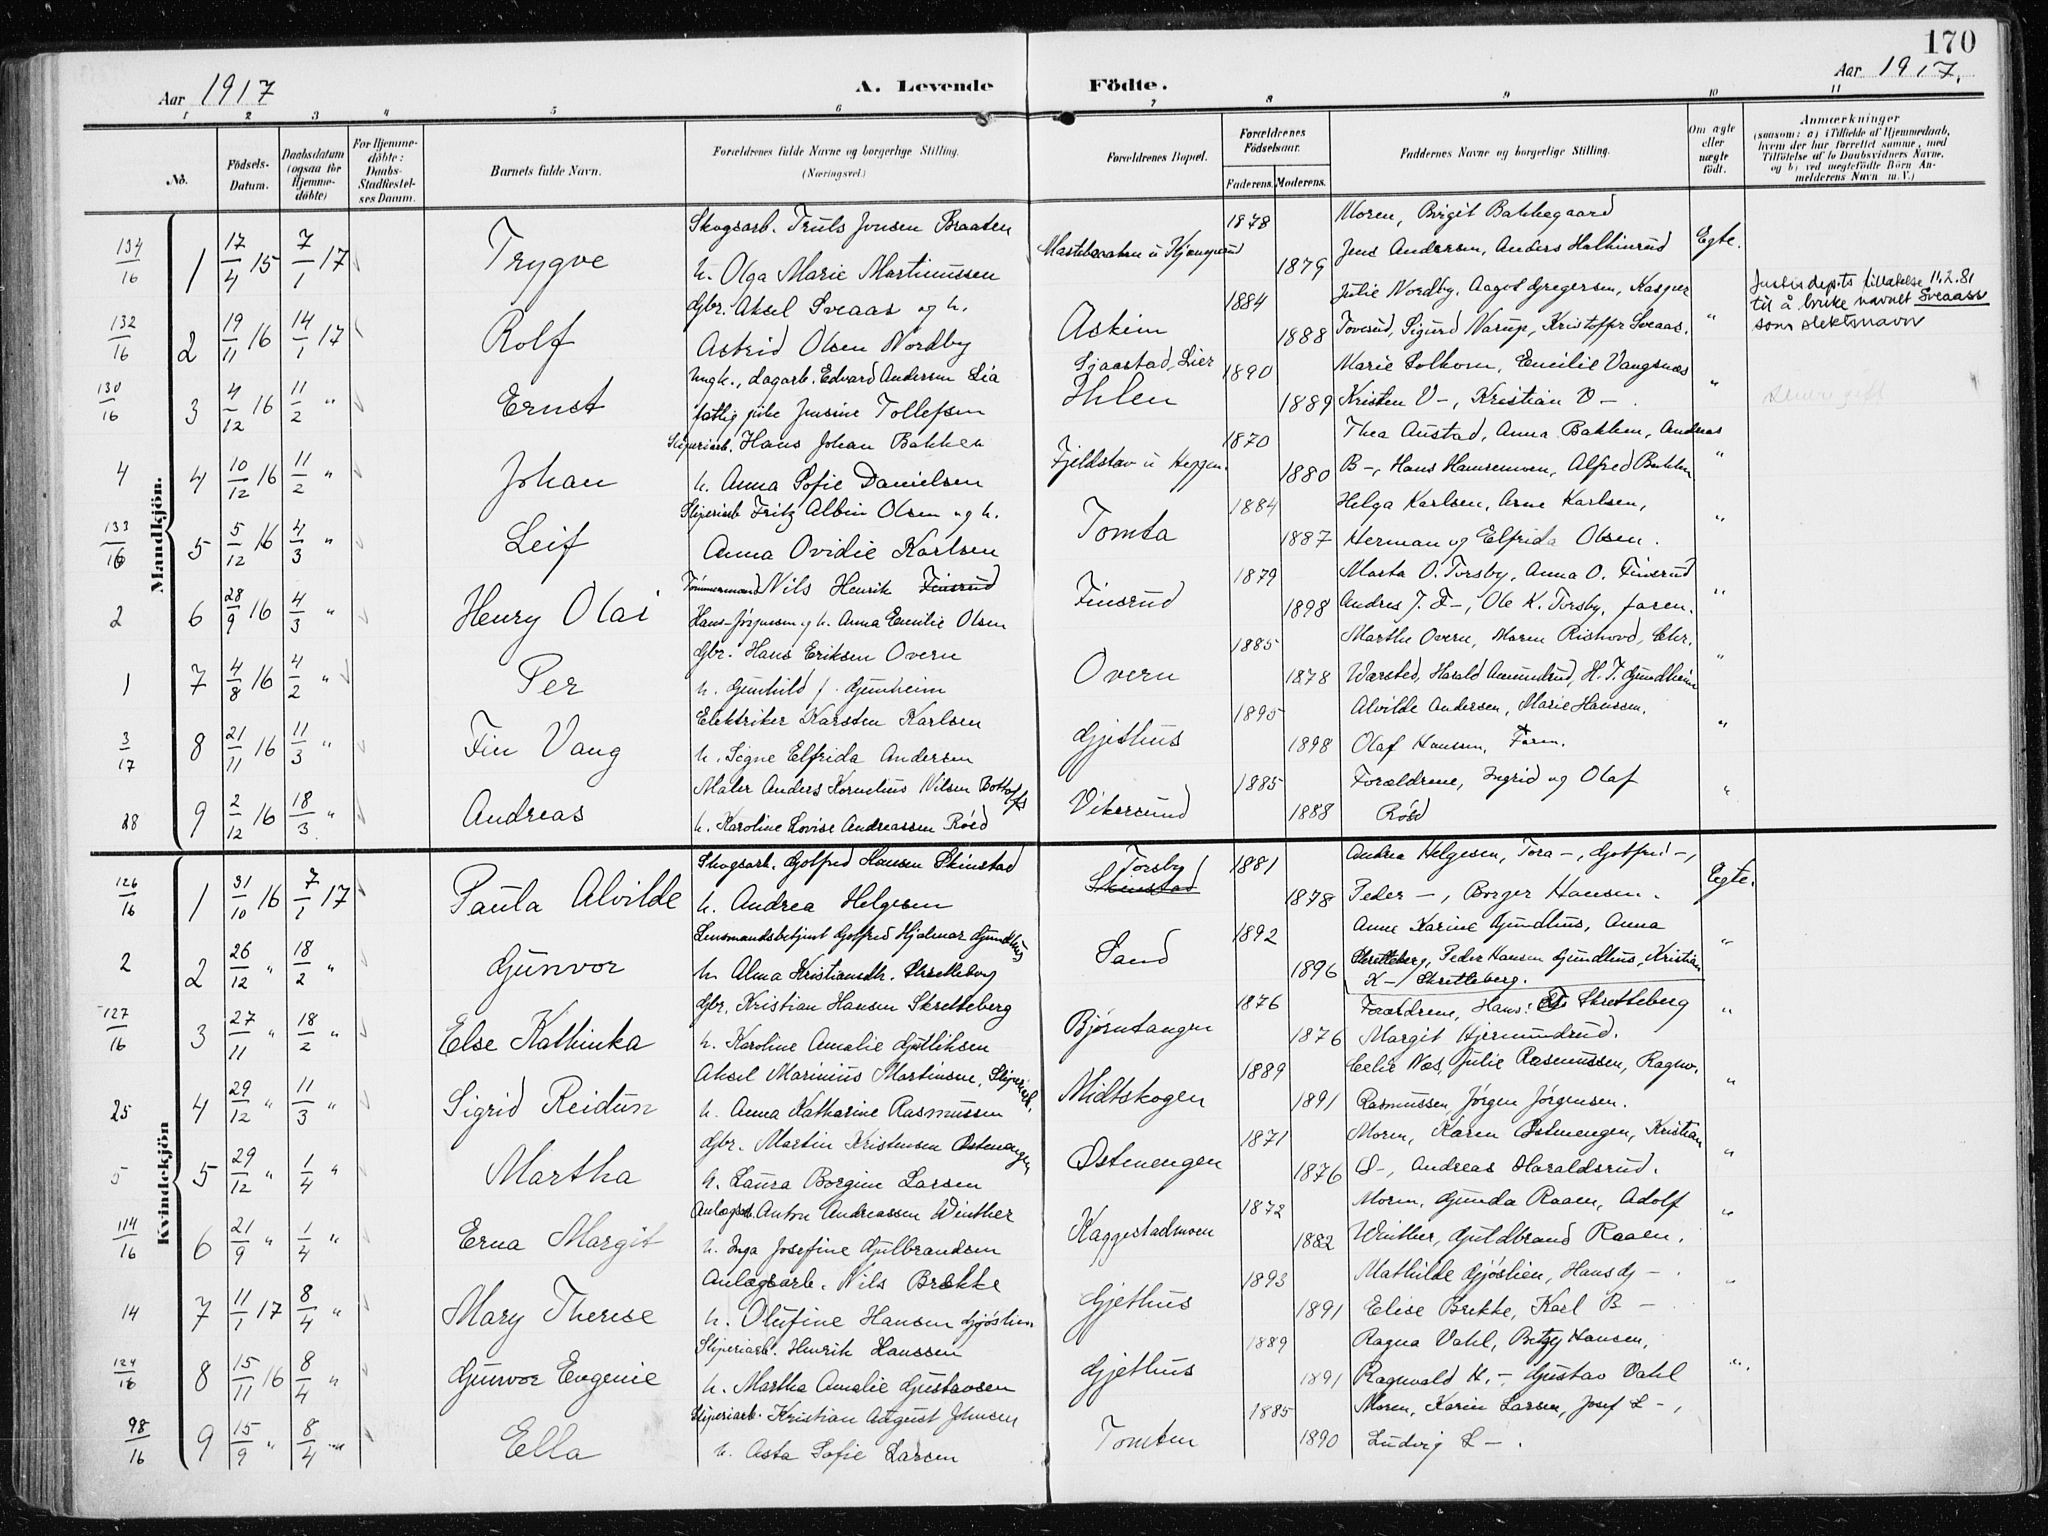 170
Aar 1917
A. Levende Födte.
Aar 1917.
1 2 3 4 5 6 7 8 9 10 11
No.
Födsels-Datum.
Daabsdatum (ogsaa for Hjemme-döbte)
For Hjemme-döbte: Daabs-Stadfæstel-ses Datum.
Barnets fulde Navn.
Forældrenes fulde Navne og borgerlige Stilling. (Næringsvei.)
Forældrenes Bopæl.
Forældrenes Födselsaar.
Faderens. Moderens.
Faddernes Navne og borgerlige Stilling.
Om ægte eller uægte födt.
Anmærkninger
(saasom: a) i Tilfælde af Hjemmedaab, hvem der har forrettet samme, med Tilföielse af to Daabsvidners Navne, og b) ved uægtefödte Börn An-melderens Navn m. V.)
Mandkjön.
134/16 1 17/4 15 7/1 17 Trygve
Skogsarb. Truls Jonsen Braaten
h. Olga Marie Martinussen
1878 1879
Moren, Birgit Bakkegaard
Jens Andersen, Anders Halkinrud
Egte.
132/16 2 19/11 16 14/1 17 Rolf
Gbr. Aksel Sveaas og h.
Astrid Olsen Nordby
Askim 1884 1888
Julie Nordby, Aagot Gregersen, Kasper
Toverud, Sigurd Narup, Kristoffer Sveaas. "
Justisdepts tillatelse 11.2.81
til å bruke navnet Sveaass
som slektsnavn
130/16 3 4/12 16 11/2 " Ernst
Ungk., dagarb. Edvard Andersen Lia
fattig pike Jensine Tollefsen
Sjaastad, Lier
Ihlen 1890 1889
Marie Solhom, Emilie Vangsnæs
Kristen V-, Kristian V-. "
4 4 10/12 16 11/2 " Johan
Sliperiarb. Hans Johan Bakken
h. Anna Sofie Danielsen
Fjeldstav u Heggen 1870 1880
Thea Austad, Anna Bakken, Andreas
B-, Hans Hansenmoen, Alfred Bakken "
133/16 5 5/12 16 4/3 " Leif
Sliperiarb Fritz Albin Olsen og h.
Anna Ovidie Karlsen
Tomta 1884 1887
Helga Karlsen, Arne Karlsen,
Herman og Elfrida Olsen. "
2 6 28/9 16 4/3 " Henry Olai
Tømmermand Nils Henrik Finsrud
Hans-Jørgensen og h. Anna Emilie Olsen
Finsrud 1879 1898
Marta O. Torsby, Anna O. Finsrud
Andres J. F-, Ole K. Torsby, faren. "
1 7 4/8 16 4/2 " Per
Gbr. Hans Eriksen Overn
h. Gunhild f. Gunheim
Overn 1885 1878
Marthe Overn, Maren Rishovd, Chr.
Warsted, Harald Amundrud, H. T. Gundheim "
3/17 8 21/11 16 11/3 " Fin Vang
Elektriker Karsten Karlsen
h. Signe Elfrida Andersen
Gjethus 1895 1898
Alvilde Andersen, Marie Hanssen,
Olaf Hansen, Faren. "
28 9 2/12 16 18/3 " Andreas
Maler Anders Kornelius Nilsen Bottolfs
h. Karoline Lovise Andreassen Röed
Vikersund 1885 1888
Forældrene, Ingrid og Olaf
Röed "
Kvindekjön
126/16 1 31/10 16 7/1 17 Paula Alvilde
Skogsarb. Gotfred Hansen Skinstad
h. Andrea Helgesen
Torsby
Skinstad 1881 1878
Andrea Helgesen, Tora -, Gotfred -,
Peder -, Borger Hansen. Egte.
2 2 26/12 " 18/2 " Gunvor
Lensmandsbetjent Gotfred Hjalmar Gundhus
h. Alma Kristiansdtr. Skretteberg
Sand 1892 1896
Anne Karine Gundhus, Anna
Skretteberg, Peder Hansen Gundhus, Kristian
K-/ Skretteberg. "
127/16 3 27/11 " 18/2 " Else Kathinka
Gbr. Kristian Hansen Skretteberg
h. Karoline Amalie Gutliksen
Bjørntangen 1876 1876
Forældrene, Hans: Skretteberg
Margit Hjermundrud. "
25 4 29/12 " 11/3 " Sigrid Reidun
Aksel Marinius Martinsen, Sliperiarb.
h. Anna Katharine Rasmussen
Midtskogen 1889 1891
Celie Næs, Julie Rasmussen, Ragnv.
Rasmussen, Jørgen Jørgensen. "
5 5 29/12 " 1/4 " Martha
Gbr. Martin Kristensen Østenengen
h. Laura Borgine Larsen
Østenengen 1871 1876
Moren, Karen Østenengen, Kristian
L-, Andreas Haraldsrud. "
114/16 6 21/9 " 1/4 " Erna Margit
Anlægsarb. Anton Andreassen Winther
h. Inga Josefine Gulbrandsen
Kaggestadmoen 1872 1882
Moren, Gunda Raaen, Adolf
Winther, Guldbrand Raaen. "
14 7 11/1 17 8/4 " Mary Therese
Anlægsarb. Nils Brække
h. Olufine Hansen Gjøslien
Gjethus 1893 1891
Mathilde Gjøslien, Hans G -.
Elise Brekke, Karl B -. "
124/16 8 15/11 16 8/4 " Gunvor Eugenie
Sliperiarb. Henrik Hanssen
h. Martha Amalie Gustavsen
Gjethus 1889 1891
Ragna Vahl, Betzy Hansen,
Ragnvald H.-, Gustav Vahl "
98/16 9 15/9 " 8/4 " Ella
Sliperiarb. Kristian August Johnsen
h. Asta Sofie Larsen
Tomten 1885 1890
Moren, Karin Larsen, Josef L -,
Ludvig L -.